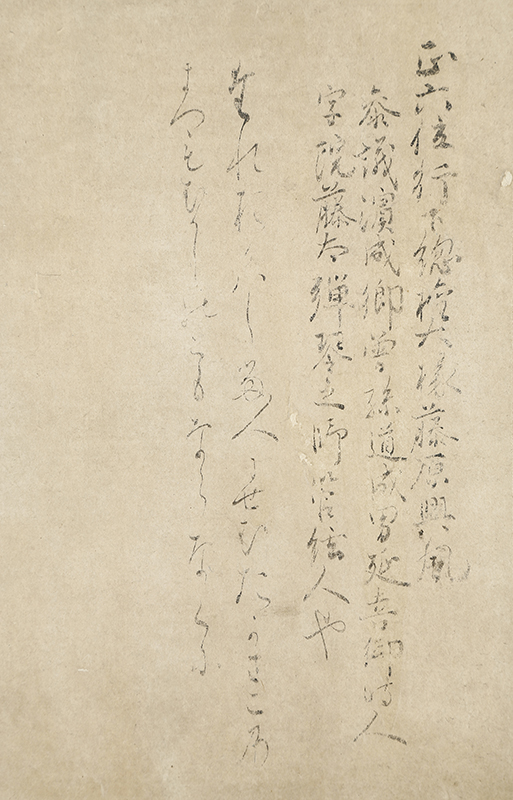 正六位行下総権大掾藤原興風
参議濱成卿曽孫道成男延喜御時人
字院藤太弾琴之師管絃人也
たれをかもしる人にせむたかさこの
まつもむかしのともならなくに